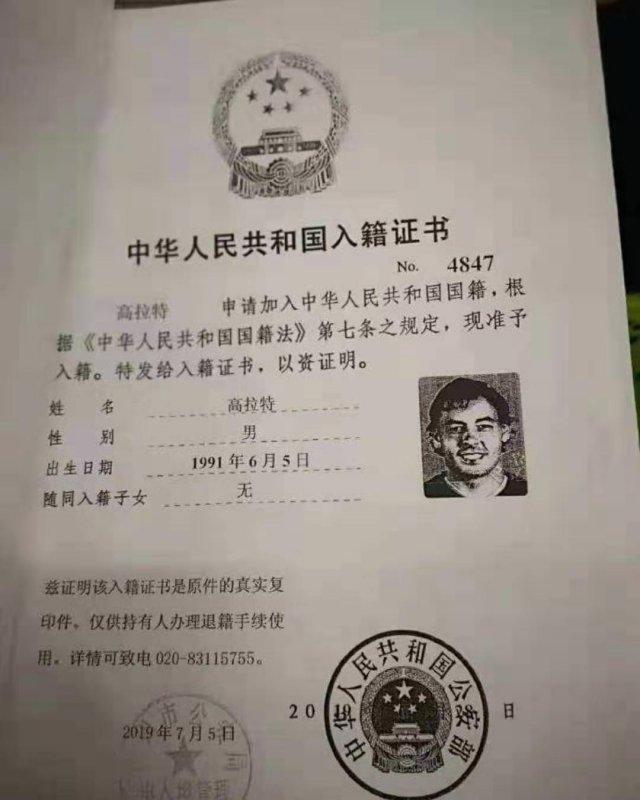 中华人民共和国入籍证书
No. 4847
高拉特 申请加入中华人民共和国国籍，根
据《中华人民共和国国籍法》第七条之规定，现准予
入籍。特发给入籍证书，以资证明。
姓 名 高拉特
性 别 男
出生日期 1991年6月5日
随同入籍子女 无
兹证明该入籍证书是原件的真实复
印件。仅供持有人办理退籍手续使
用。详情可致电 020-83115755。
2019年7月5日
20 日
中华人民共和国公安部